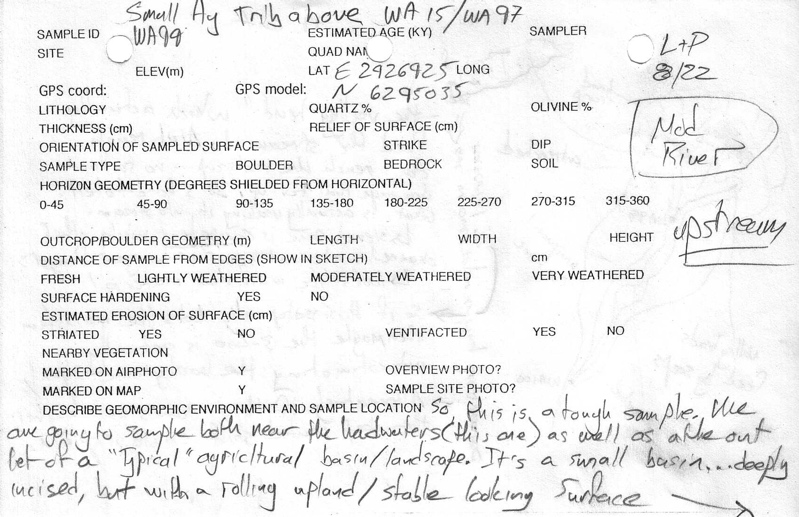 Small Ag Trib above WA15/WA97
SAMPLE ID WA99 ESTIMATED AGE (KY) SAMPLER L+P
SITE QUAD NAM 8/22
ELEV(m) LAT E 2926925 LONG
GPS coord: GPS model: N 6295035
LITHOLOGY QUARTZ % OLIVINE %
THICKNESS (cm) RELIEF OF SURFACE (cm) Mad
ORIENTATION OF SAMPLED SURFACE STRIKE DIP River
SAMPLE TYPE BOULDER BEDROCK SOIL
HORIZON GEOMETRY (DEGREES SHIELDED FROM HORIZONTAL)
0-45 45-90 90-135 135-180 180-225 225-270 270-315 315-360
upstream
OUTCROP/BOULDER GEOMETRY (m) LENGTH WIDTH HEIGHT
DISTANCE OF SAMPLE FROM EDGES (SHOW IN SKETCH) cm
FRESH LIGHTLY WEATHERED MODERATELY WEATHERED VERY WEATHERED
SURFACE HARDENING YES NO
ESTIMATED EROSION OF SURFACE (cm)
STRIATED YES NO VENTIFACTED YES NO
NEARBY VEGETATION
MARKED ON AIRPHOTO Y OVERVIEW PHOTO?
MARKED ON MAP Y SAMPLE SITE PHOTO?
DESCRIBE GEOMORPHIC ENVIRONMENT AND SAMPLE LOCATION So, this is a tough sample. We
are going to sample both near the hadwaters (this one) as well as at the out
let of a "Typical" agricltural basin/landscape. It's a small basin...deeply
incised, but with a rolling upland/stable looking surface →